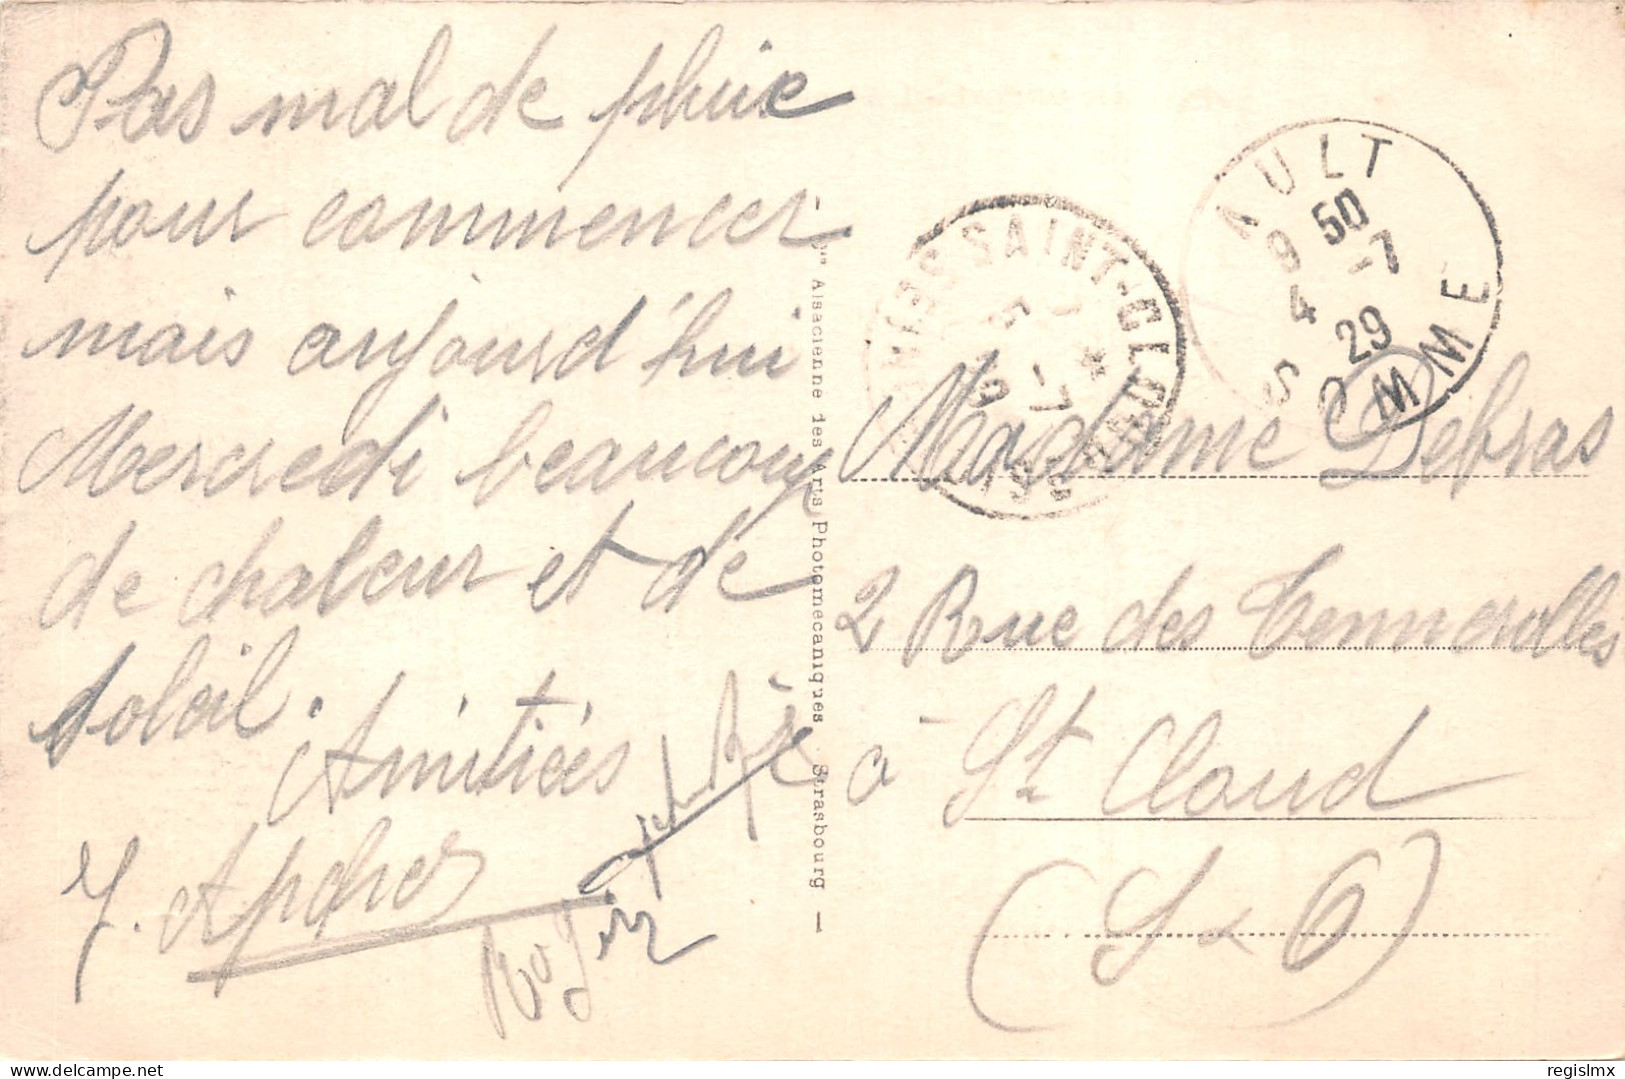 Pas mal de pluie
pour commencer
mais aujourd'hui
Mercredi beaucoup
de chaleur et de
soleil.
Amitiés
Roger
Cie Alsacienne des Arts Photomécaniques Strasbourg
AULT
9 50
4 -7
29
SOMME
SAINT-CLOUD
5 -7
Madame Debras
2 Rue des Tennerolles
à St Cloud
(S & O)
regislmx